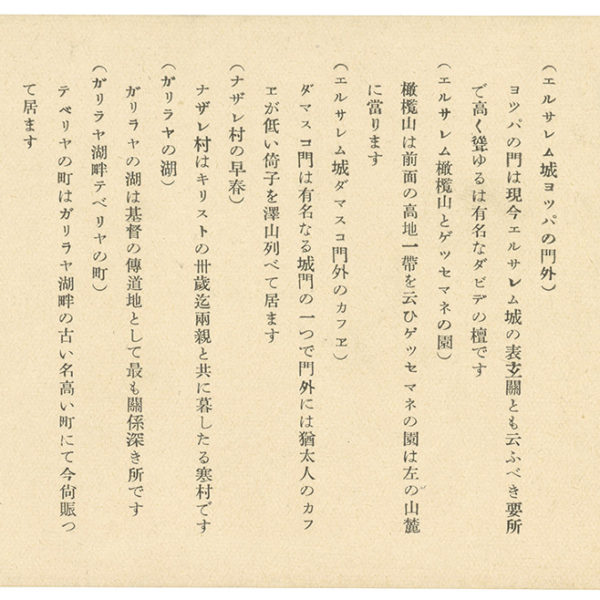 (エルサレム城ヨツパの門外)
ヨツパの門は現今エルサレム城の表玄關とも云ふべき要所
で高く聳ゆるは有名なダビデの檀です
(エルサレム橄欖山とゲツセマネの園)
橄欖山は前面の高地一帶を云ひゲツセマネの園は左の山麓
に當ります
(エルサレム城ダマスコ門外のカフヱ)
ダマスコ門は有名なる城門の一つで門外には猶太人のカフ
ヱが低い倚子を澤山列べて居ます
(ナザレ村の早春)
ナザレ村はキリストの卅歲迄兩親と共に暮したる寒村です
(ガリラヤの湖)
ガリラヤの湖は基督の傳道地として最も關係深き所です
(ガリラヤ湖畔テベリヤの町)
テベリヤの町はガリラヤ湖畔の古い名高い町にて今尙賑つ
て居ます